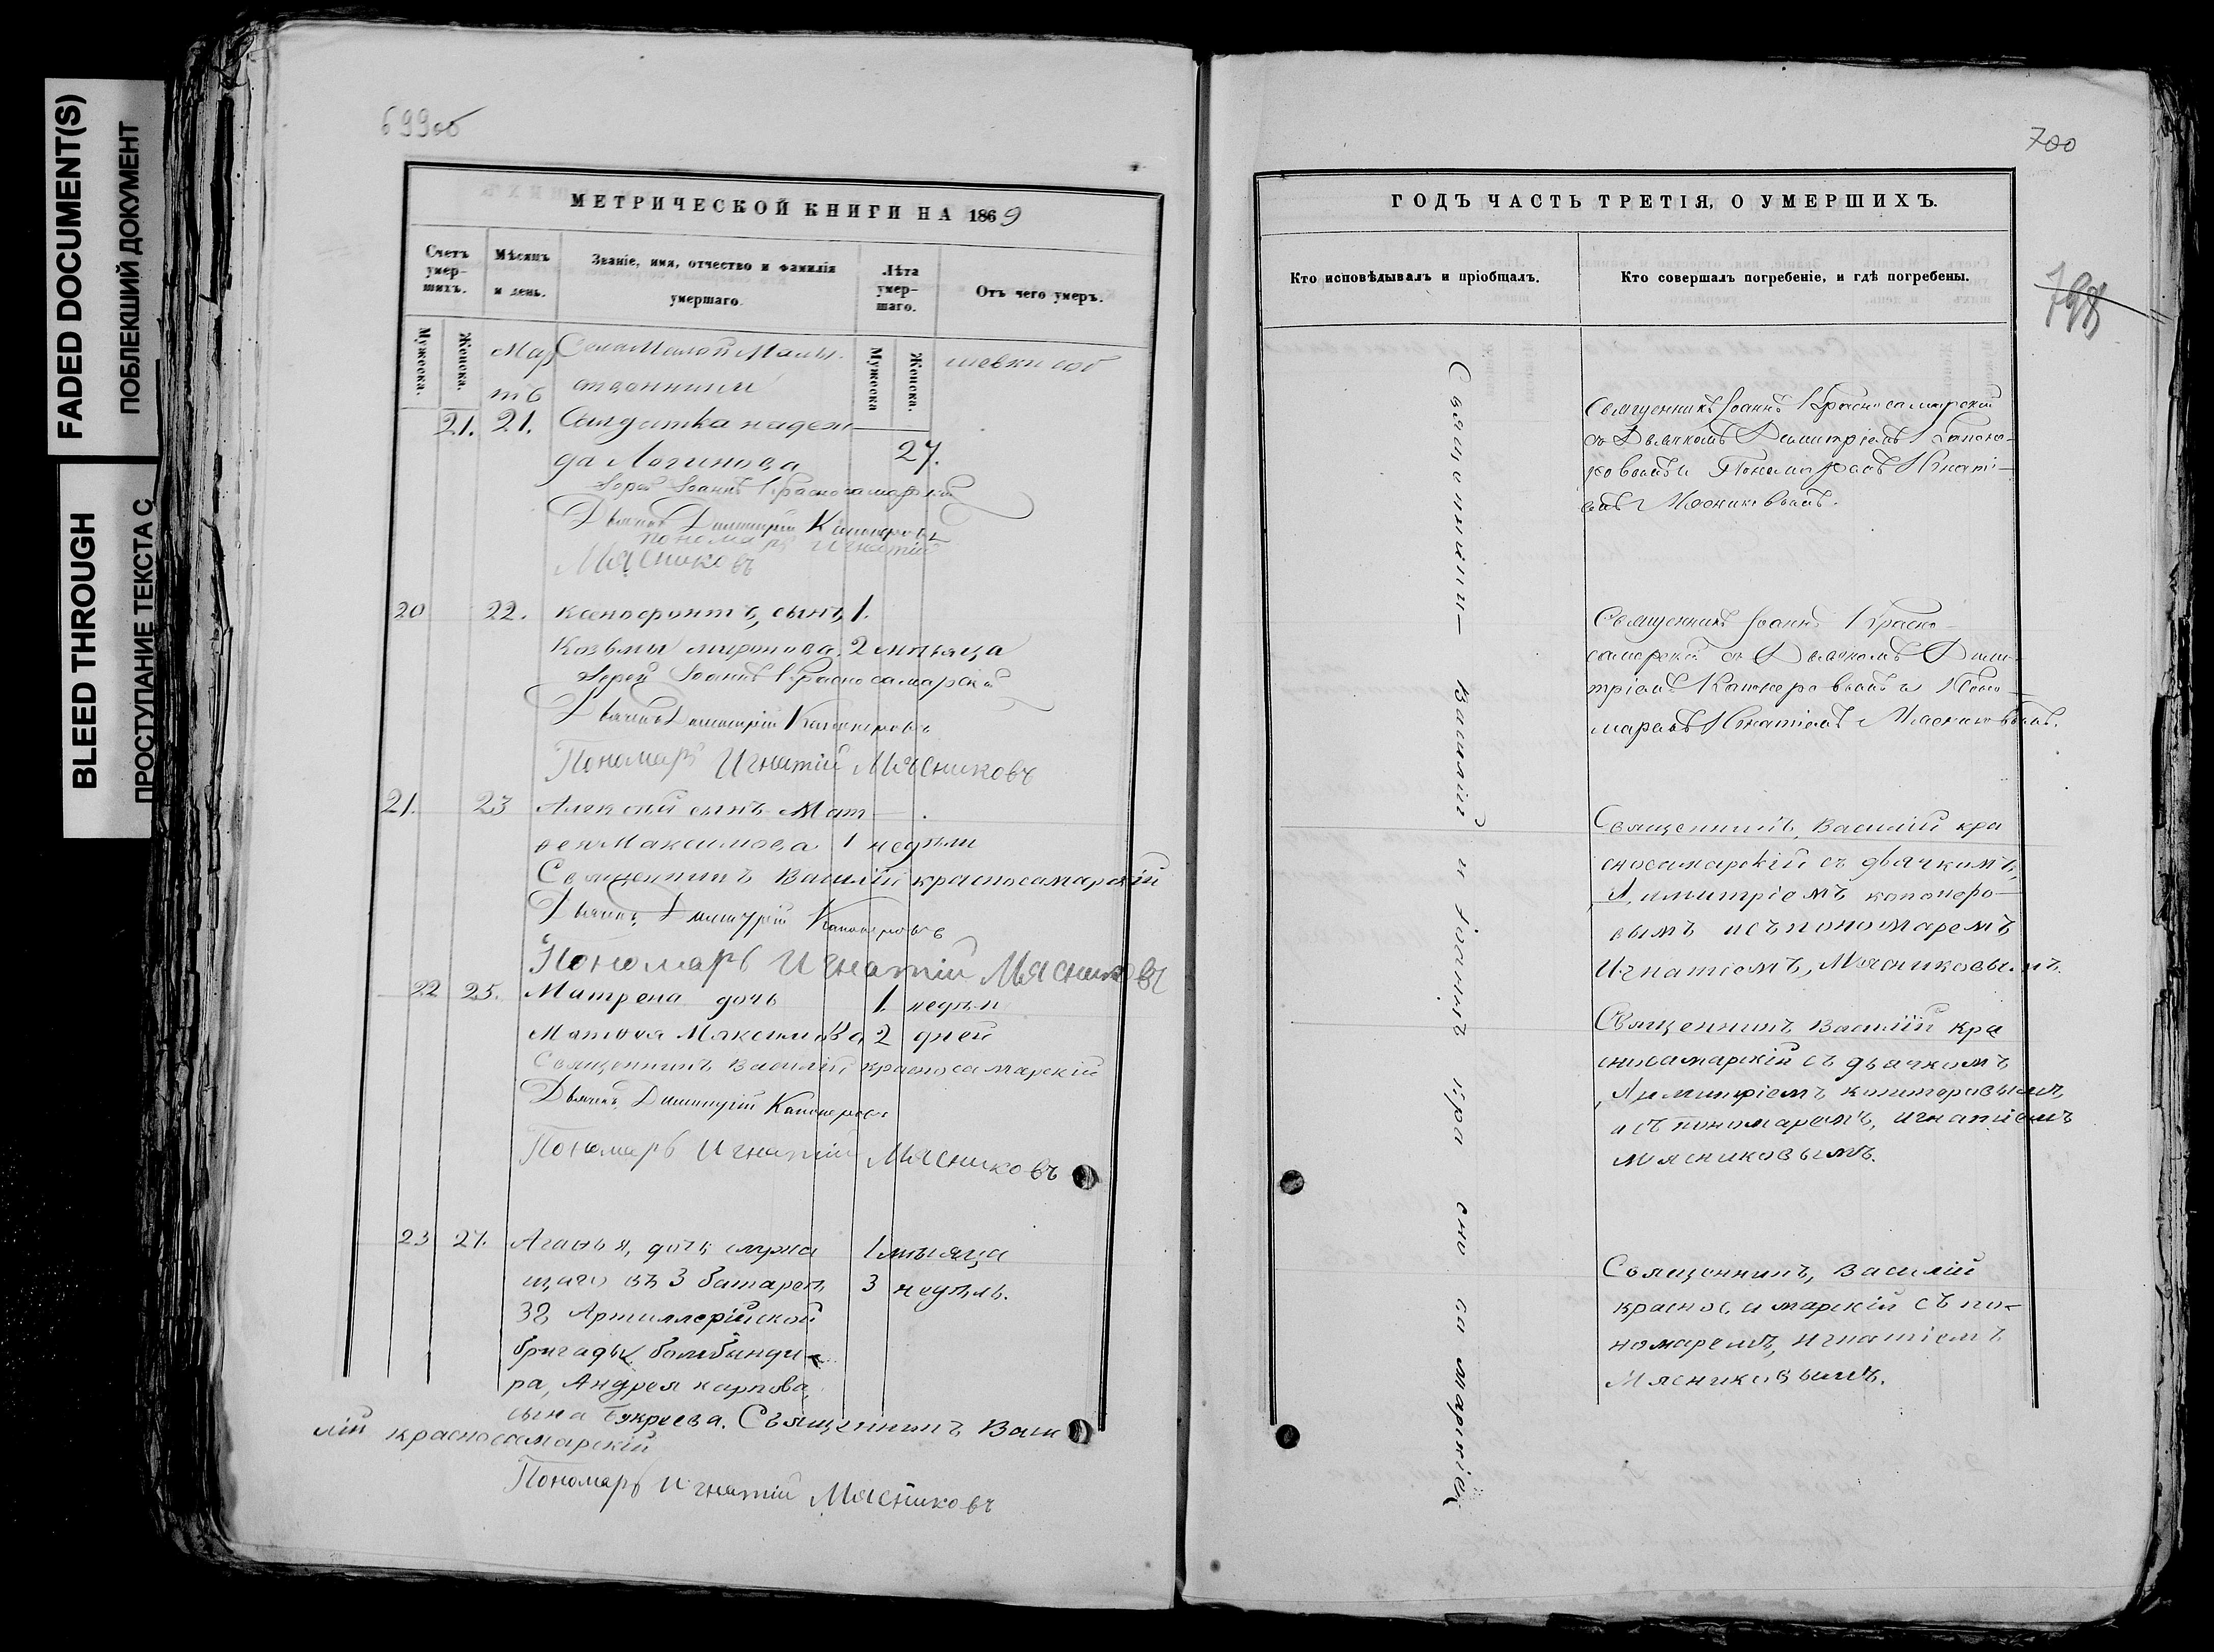 FADED DOCUMENT(S)
ПОБЛЕКШИЙ ДОКУМЕНТ
BLEED THROUGH
ПРОСТУПАНИЕ ТЕКСТА С
699об
МЕТРИЧЕСКОЙ КНИГИ НА 1869
Счетъ умер-шихъ.
Мѣсяцъ и день.
Званіе, имя, отчество и фамилія умершаго.
Лѣта умер-шаго.
Отъ чего умеръ.
Мужеска.
Женска.
Мужеска
Женска.
Мар Села Малой Малы шевки соб
тъ
21. 21. Солдатка надеж
да Логинова 27.
Іерей Іоаннъ Красносамарскій
Дьячекъ Димитрій Канонеровъ
пономарь Игнатій
Мясниковъ
20 22. Ксенофонтъ, сынъ 1.
Козьмы миронова. 2 мѣсяца
Іерей Іоаннъ Красносамарскій
Дьячекъ Димитрій Канонеровъ
Пономарь Игнатій Мясниковъ
21. 23 Алексѣй сынъ Мат
ѳея Максимова 1 недѣли
Священникъ Василій красносамарскій
Дьячекъ Димитрій Канонеровъ
Пономарь Игнатій Мясниковъ
22 25. Матрена дочь 1. недѣли
Матѳея Максимова 2 дней
Священникъ Василій красносамарскій
Дьячекъ Димитрій Канонеровъ
Пономарь Игнатій Мясниковъ
23 27. Агаѳья, дочь служа 1 мѣсяца
щаго въ 3 батареѣ 3 недѣль.
38 Артиллерійской
бригады бомбанди
ра, Андрея карпова,
сына Букреева. Священникъ Васи
лій красносамарскій
Пономарь Игнатій Мясниковъ
700
798
ГОДЪ ЧАСТЬ ТРЕТІЯ, О УМЕРШИХЪ.
Кто исповѣдывалъ и пріобщалъ.
Кто совершалъ погребеніе, и гдѣ погребены.
Священники Василій и іоаннъ кра сно са марскіе
Священникъ Іоаннъ Красносамарскій
съ Дьячкомъ Димитріемъ Каноне-
ровымъ и Пономаремъ Игнаті-
емъ Мясниковымъ.
Священникъ Іоаннъ Красно-
самарскій съ Дьячкомъ Дими-
тріемъ Канонеровымъ и Поно-
маремъ Игнатіемъ Мясниковымъ.
Священникъ, Василій кра
сносамарскій съ дьячкомъ,
Димитріемъ канонеро-
вымъ и съ пономаремъ
Игнатіемъ, Мясниковымъ.
Священникъ Василій кра
сносамарскій съ дьячкомъ
Димитріемъ канонеровымъ,
и съ пономаремъ, игнатіемъ
мясниковымъ.
Священникъ, Василій
красносамарскій съ по-
номаремъ, игнатіемъ
Мясниковымъ.